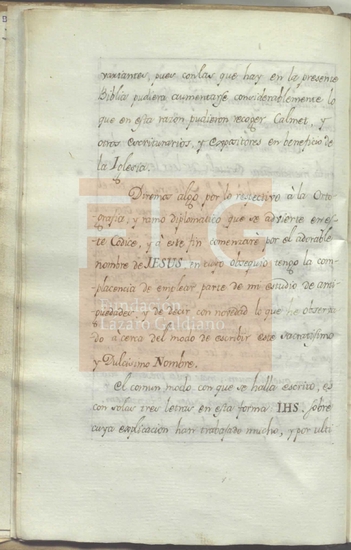 variantes, pues con las que hay en la presente
Biblia pudiera aumentarse considerablemente lo
que en esta razon pudieron recoger Calmet, y
otros escriturarios, y Expositores en beneficio de
la Iglesia.
Diremos algo por lo respectivo à la Orto
grafia, y ramo diplomatico que se advierte en es
te Codice, y à este fin comenzarè por el adorable
nombre de JESUS, en cuyo obsequio tengo la com
placencia de emplear parte de mi estudio de anti
guedades, y de decir con novedad lo que he observa
do àcerca del modo de escribir este Sacratissimo
y Dulcisimo Nombre.
El comun modo con que se halla escrito, es
con solas tres letras en esta forma IHS. Sobre
cuya explicacion han trabajado mucho, y por ulti
FLG
Fundación
Lázaro Galdiano